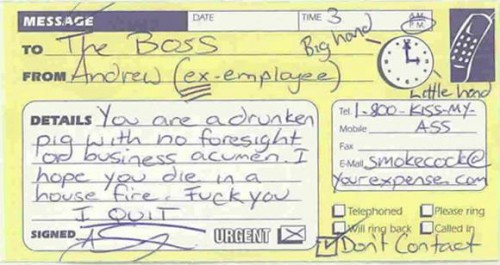 MESSAGE
DATE
TIME 3
A.M.
P.M.
TO The Boss
Big hand
FROM Andrew (ex-employee)
Little hand
DETAILS You are a drunken
pig with no foresight
or business acumen. I
hope you die in a
house fire. Fuck you
I QUIT
SIGNED A
URGENT
Tel. 1-800-KISS-MY-
Mobile ASS
Fax
E-Mail smokecock@
yourexpense.com
Telephoned
Please ring
Will ring back
Called in
Don't Contact